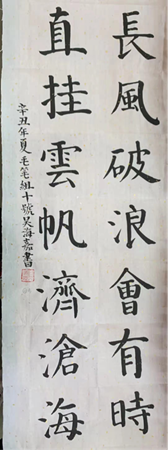 長風破浪會有時
直挂雲帆濟滄海
辛丑年夏毛笔组十號吴海嘉書